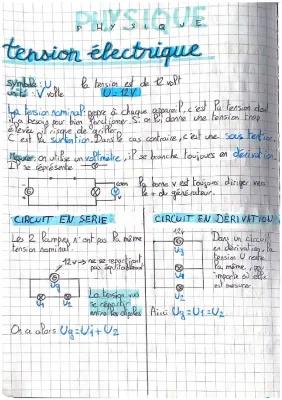 PHYSIQUE
PHYSIQUE
tension électrique
symbole: U
unité: V volte
la tension est de 12 volt
U = 12V
La tension nominal: propre à chaque appareil, c'est la tension dont
il a besoin pour bien fonctionner. Si on lui donne une tension trop
élevée il risque de griller
C'est la surtention. Dans le cas contraire, c'est une sous tention.
Mesurer: on utilise un voltmètre, il se branche toujours en dérivation.
Il se représente
com
la borne v est toujours diriger vers
le + du générateur.
CIRCUIT EN SERIE
Les 2 lampes n'ont pas la même
tension nominal.
12v → ne se repartient
pas équitablement
Ug
U1 U2
La tension va
se répartir
entre les dipoles
On a alors Ug = U1 + U2
CIRCUIT EN DÉRIVATION
12v
Ug
U1
U2
Dans un circuit
en dérivation, la
tension U reste
la même, peu
importe où elle
est mesurer
Ainsi Ug = U1 = U2